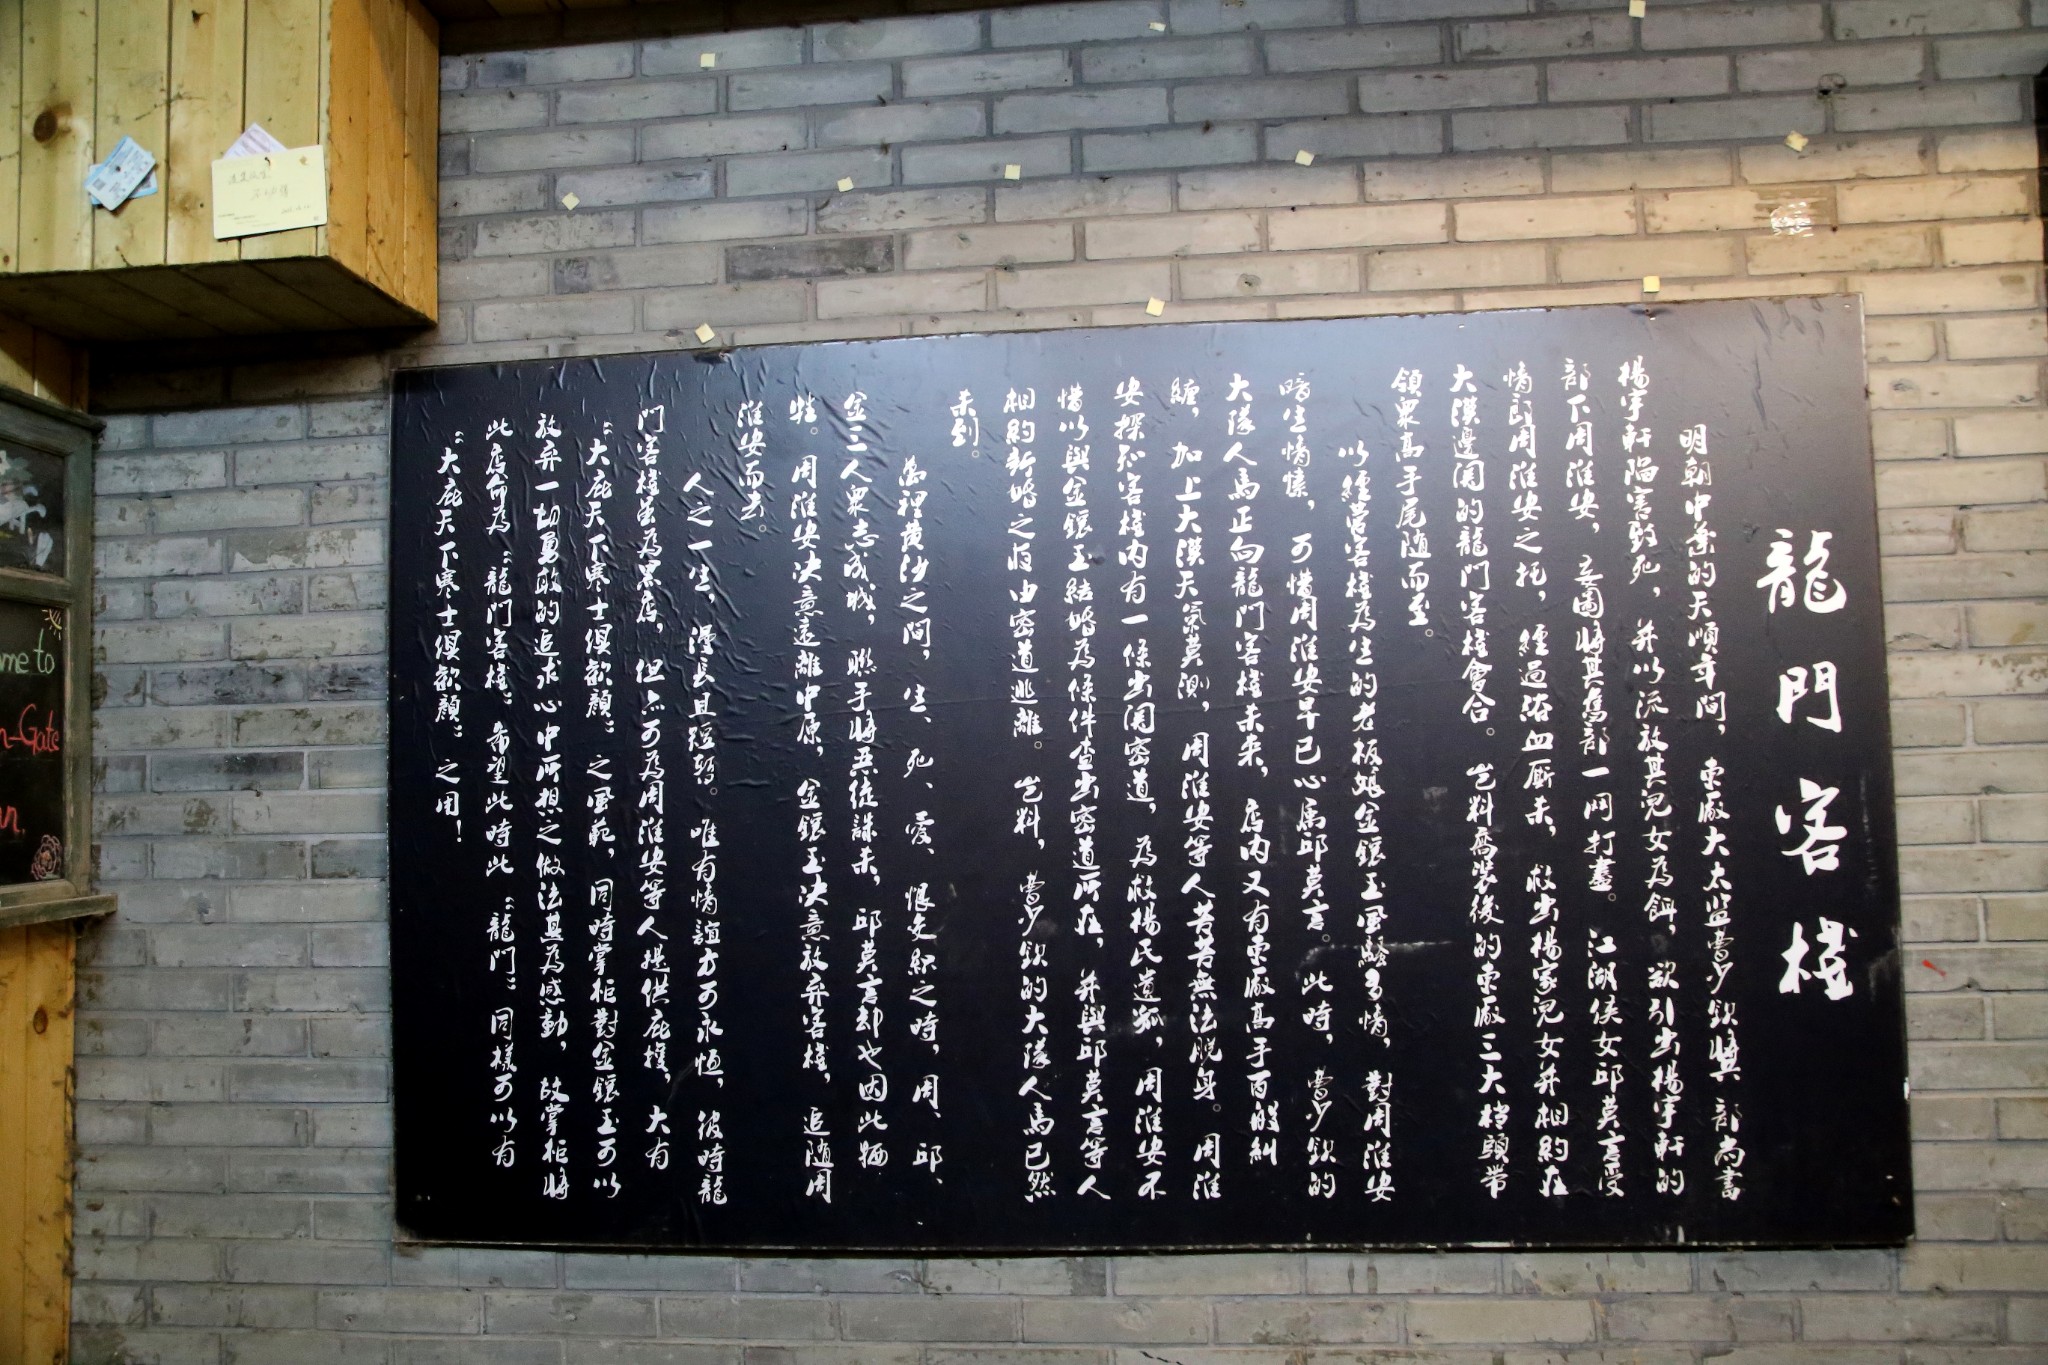 龍門客棧
明朝中葉的天順年間，東廠大太監曹少欽將與部尚書
楊宇軒陷害致死，并以流放其兒女為餌，欲引出楊宇軒的
部下周淮安，妄圖將其舊部一網打盡。江湖俠女邱莫言受
情郎周淮安之托，經過浴血厮杀，救出楊家兒女并相約在
大漠邊関的龍門客棧會合。豈料喬裝後的東廠三大檔頭带
領衆高手尾随而至。
以經營客棧為生的老板娘金鑲玉風騷多情，對周淮安
暗生情愫，可惜周淮安早已心属邱莫言。此時，曹少欽的
大隊人馬正向龍門客棧杀来，店内又有東廠高手百般糾
纏，加上大漠天氣莫測，周淮安等人苦苦無法脱身。周淮
安探知客棧内有一條出関密道，為救楊氏遺孤，周淮安不
惜以與金鑲玉結婚為條件查出密道所在，并與邱莫言等人
相約新婚之夜由密道逃離。豈料，曹少欽的大隊人馬已然
杀到。
萬裡黄沙之間，生、死、愛、恨交織之時，周、邱、
金三人衆志成城，聯手將吾徒誅杀，邱莫言却也因此犧
牲。周淮安决意遠離中原，金鑲玉决意放弃客棧，追随周
淮安而去。
人之一生，漫長且短轉。唯有情誼方可永恒，彼時龍
門客棧虽為黑店，但亦可為周淮安等人提供庇護，大有
“大庇天下寒士俱歡顔”之風範，同時掌柜對金鑲玉可以
放弃一切勇敢的追求心中所想之做法甚為感動，故掌柜將
此店命為“龍門客棧”希望此時此“龍門”同樣可以有
“大庇天下寒士俱歡顔”之用！
me to
n-Gate
an.